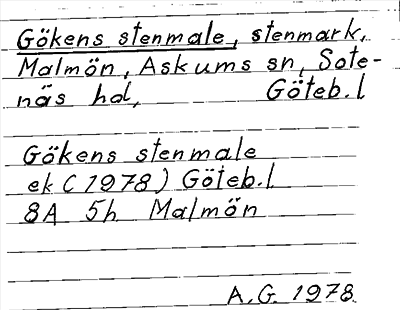 Gökens stenmale, stenmark,
Malmön, Askums sn, Sote-
näs hd, Göteb.l
Gökens stenmale
ek (1978) Göteb.l
8A 5h Malmön
A.G. 1978